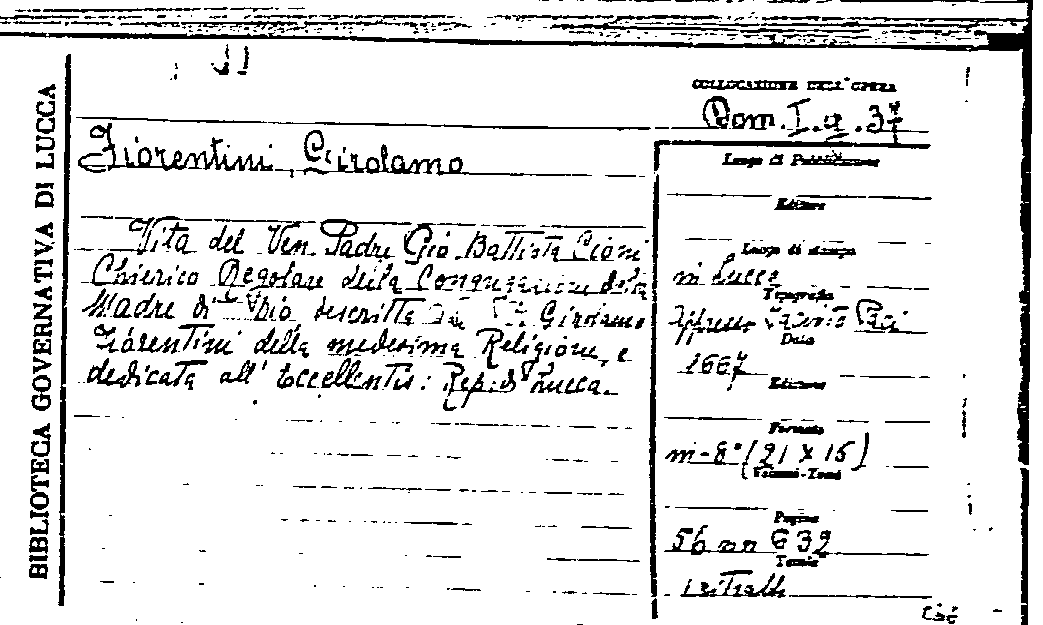 BIBLIOTECA GOVERNATIVA DI LUCCA
COLLOCAZIONE DELL'OPERA
Dom. I. a. 37
Fiorentini, Girolamo
Luogo di Pubblicazione
Editore
Vita del Ven. Padre Gio. Battista Cioni
Chierico Regolare della Congregazione della
Madre di Dio descritta dal P. Girolamo
Fiorentini della medesima Religione, e
dedicata all' Eccellentis: Rep. di Lucca.
Luogo di stampa
in Lucca
Tipografia
appresso Iacinto Paci
Data
1667
Edizione
Formato
in-8° (21 x 15)
Volumi-Tomi
Pagine
56 nn 632
Tavole
1 ritratto